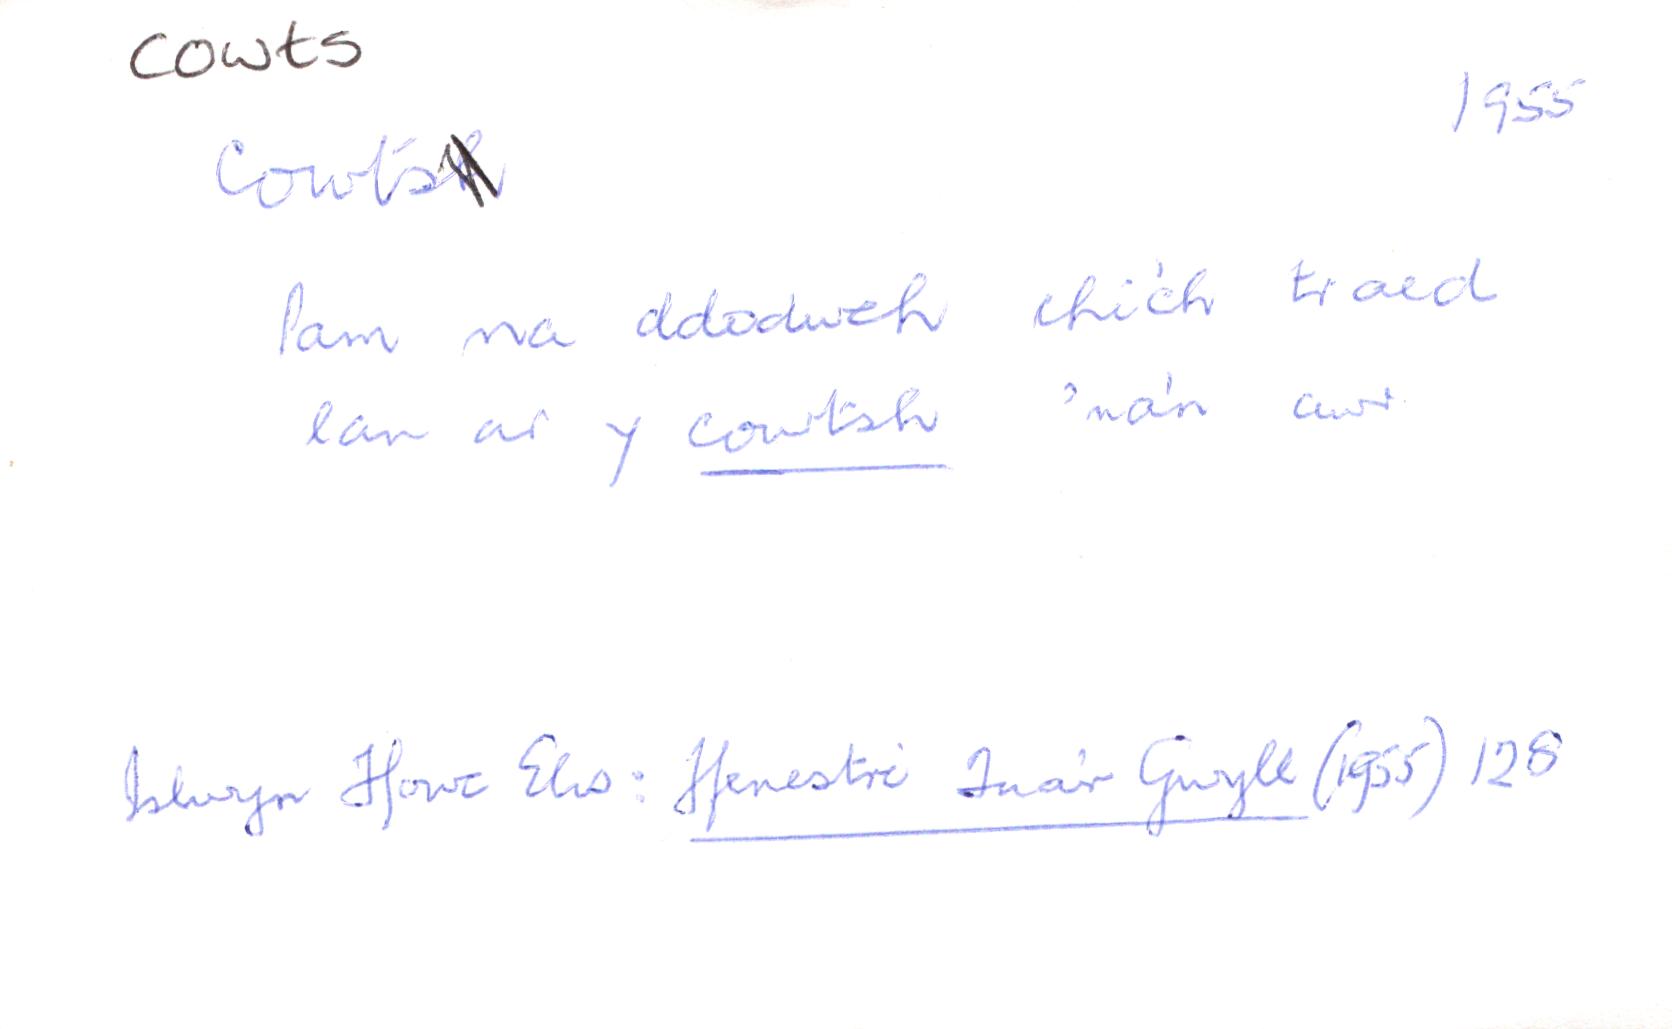 cowts
1955
Cowtsh
Pam na ddodwch chi'ch traed
lan ar y cowtsh 'na'n awr
Islwyn Ffowc Elis: Ffenestri Tua'r Gwyll (1955) 128